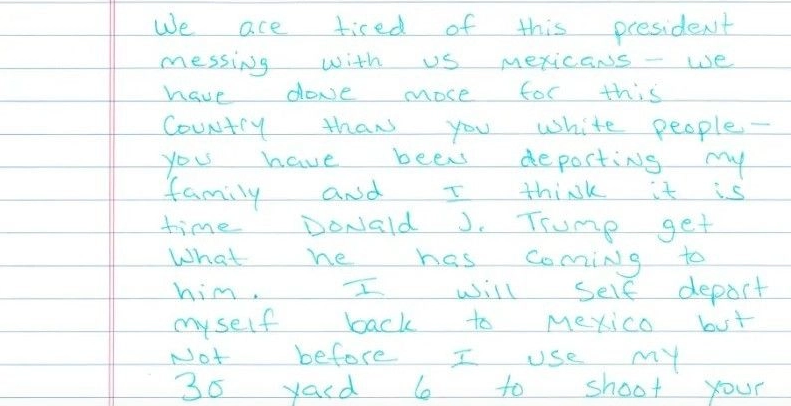 We are tired of this president
messing with us mexicans - we
have done more for this
Country than you white people -
you have been deporting my
family and I think it is
time Donald J. Trump get
What he has coming to
him. I will self deport
myself back to Mexico but
Not before I use my
30 yard 6 to shoot your